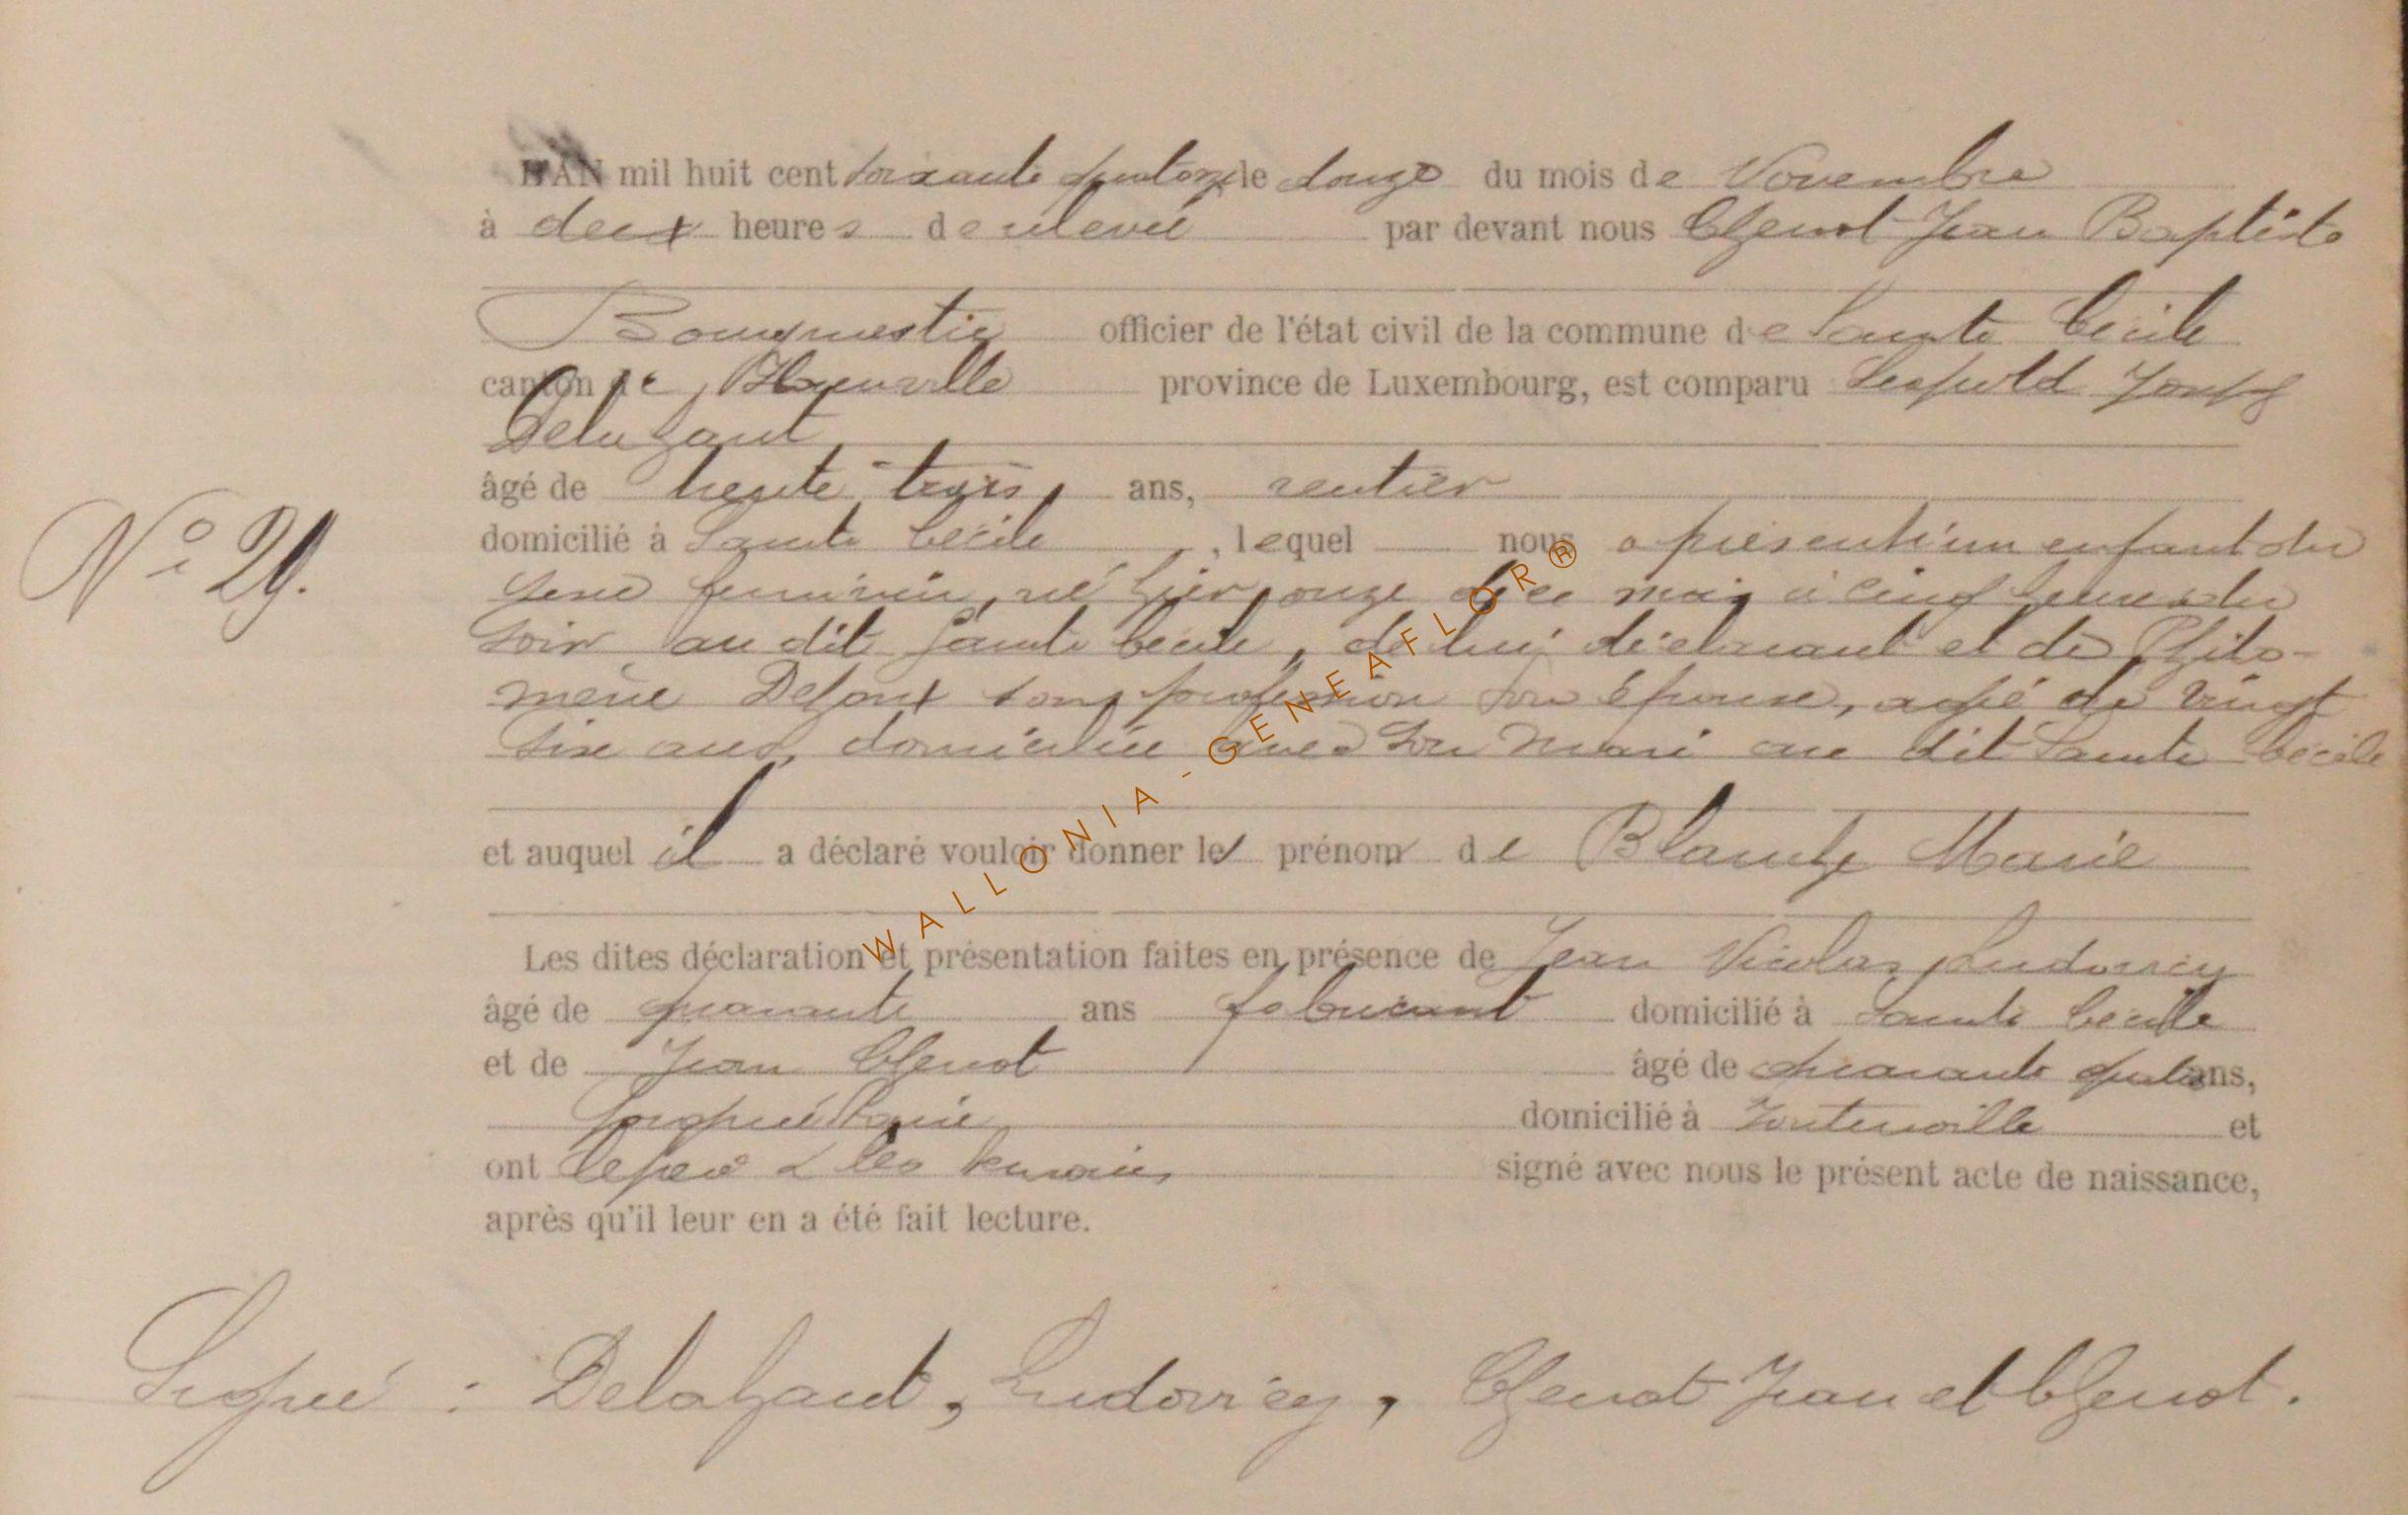 L'AN mil huit cent soixante quatorze le douze du mois de Novembre
à deux heures de relevée par devant nous Chenot Jean Baptiste
Bourgmestre officier de l'état civil de la commune de Sainte Cécile
canton de Florenville province de Luxembourg, est comparu Léopold Joseph
Delahaut
âgé de trente trois ans, rentier
domicilié à Sainte Cécile, lequel nous a présenté un enfant du
N° 29.
sexe feminin, né hier onze de ce mois à cinq heures du
soir au dit Sainte Cécile, de lui déclarant et de Philo-
mène sans profession son épouse, agé de vingt
six ans, domiciliée avec son mari au dit Sainte Cécile
et auquel il a déclaré vouloir donner les prénoms de Blanche Marie
Les dites déclaration et présentation faites en présence de Jean Nicolas Ludovicy
âgé de quarante ans fabricant domicilié à Sainte Cécile
et de Jean Chenot âgé de quarante quatre ans,
propriétaire domicilié à Fontenoille et
ont le père & les témoins signé avec nous le présent acte de naissance,
après qu'il leur en a été fait lecture.
Signé : Delahaut, Ludovicy, Chenot Jean et Chenot.
WALLONIA-GENEAFLOR®